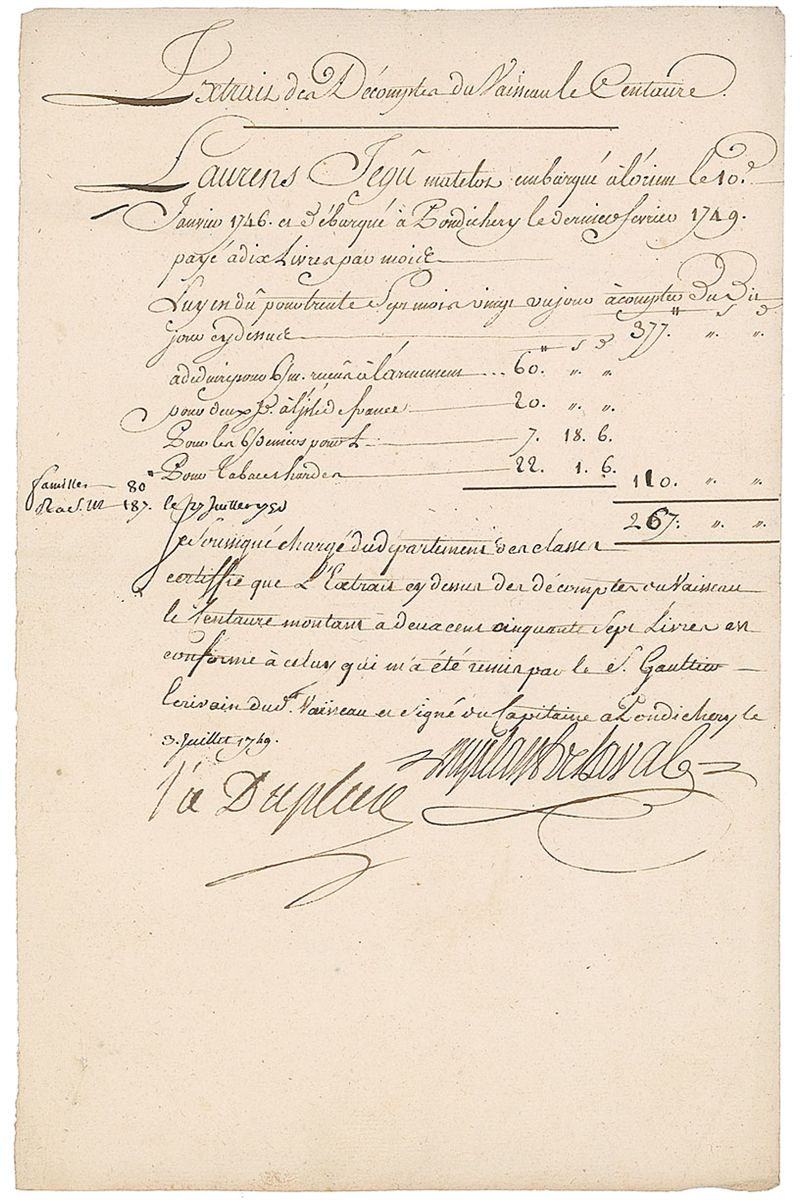 Extrait des Décomptes du Vaisseau le Centaure.
Laurens Jegû matelot embarqué à lórient le 10.e
Janvier 1746. et Débarqué à Pondichery le dernier fevrier 1749.
payé a dix Livres par mois
Luy en dû pour trente Sept mois vingt un jour à compter Du Dit
jour cy dessus 377. " "
a deduire pour 6/m. recûs à l'armement ... 60. " "
pour deux à l'isle de france 20. " "
Pour les 6 Deniers pour £ 7. 18. 6.
Pour tabac et hardes 22. 1. 6.
110. " "
famille 80
187. le 27 Juillet 1750
267: " "
Je Soussigné chargé du département des classes
certiffie que L'Extrait cy dessus des décomptes du Vaisseau
le Centaure montant à deux cent cinquante Sept Livres est
conforme à celuy qui m'a été remis par le S. Gaultier
Ecrivain du d.t Vaisseau et Signé du Capitaine a Pondichery le
3. Juillet 1749.
Vû Dupleix